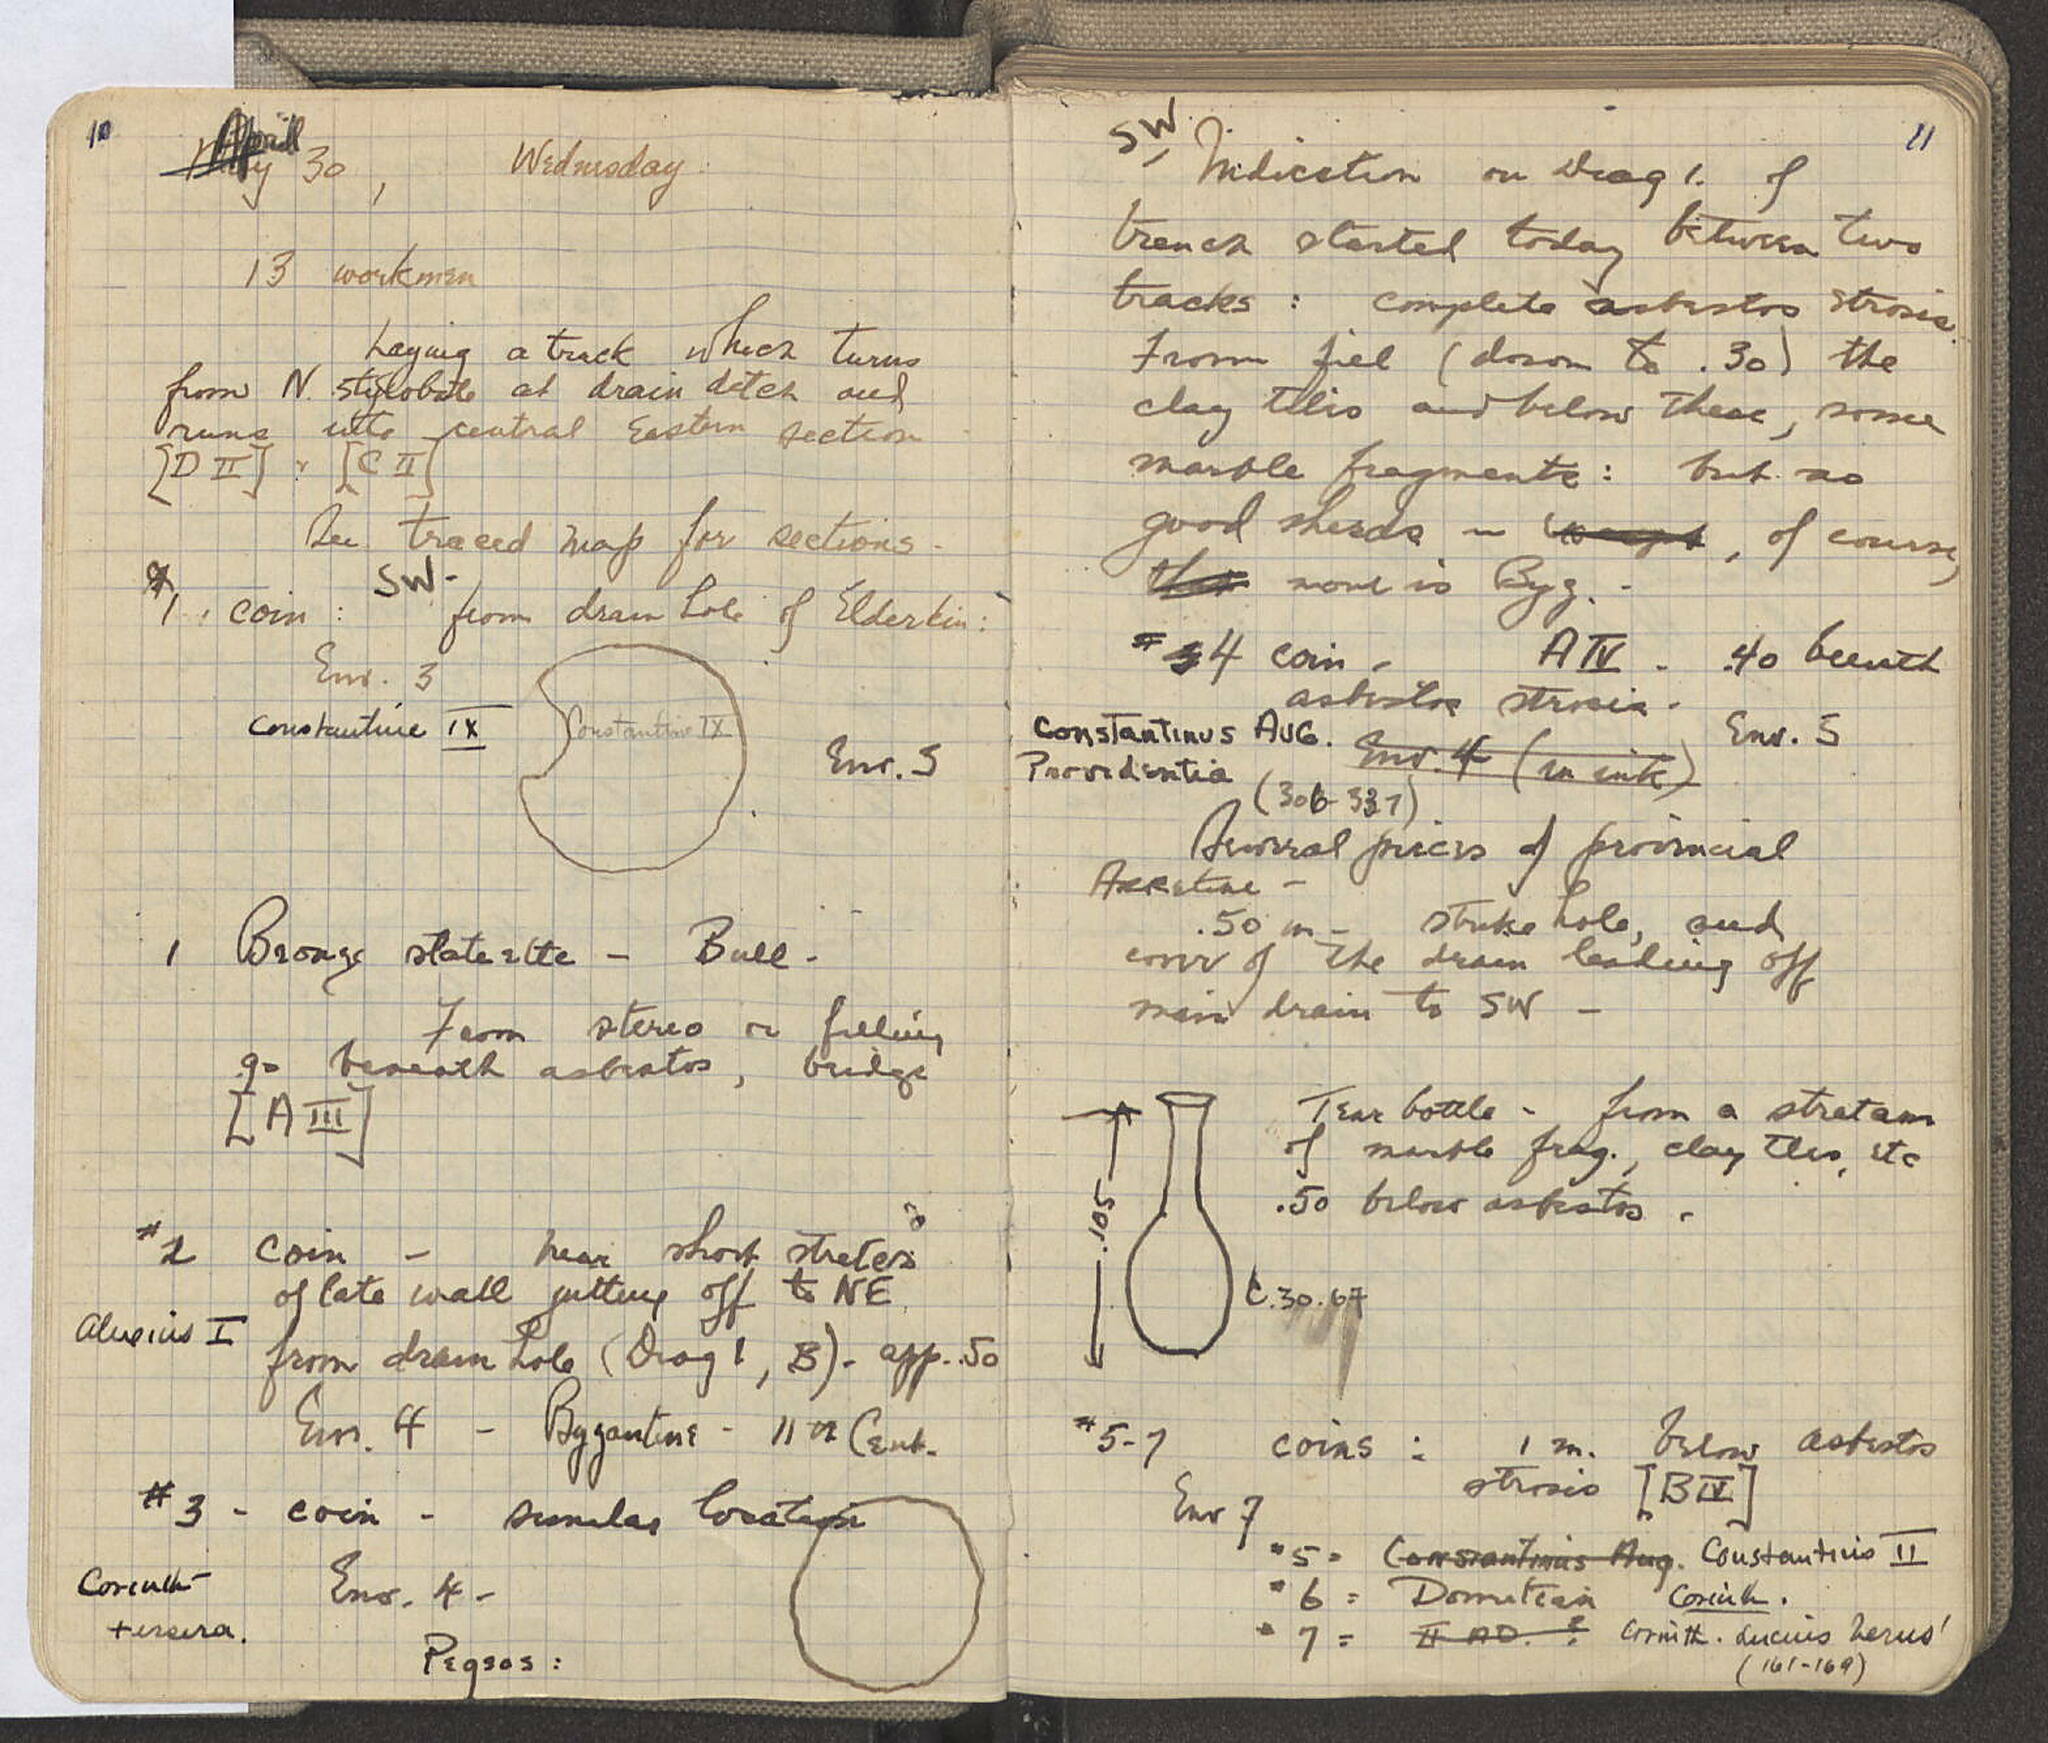 10
April
May 30, Wednesday.
13 workmen
Laying a track which turns
from N. stylobate at drain ditch and
runs into central Eastern section
[D II] + [C II]
See traced map for sections.
SW-
#1. coin: from drain hole of Elderkin:
Env. 3
Constantine IX
Constantine IX
Env. 5
1 Bronze statuette - Bull -
From stereo or filling
beneath asbestos, bridge
[A III]
#2 coin - near short stretch
of late wall jutting off to NE
Alexius I
from drain hole (Diag 1, B) - app. .50
Env. 4 - Byzantine - 11th Cent.
#3 - coin - similar location
Corinth
tessera.
Env. 4 -
Pegsos:
11
SW. Indication on Diag 1. of
trench started today between two
tracks: complete asbestos strosis
From fill (down to .30) the
clay tiles and below these, some
marble fragments: but no
good sherds - except, of course,
this none is Byz. -
#4 coin - A IV - .40 beneath
asbestos strosis -
Constantinus AUG.
Env. 4 (in ink)
Env. 5
Providentia
(306-337)
Several pieces of provincial
Arretine -
.50 m - strike hole, and
cover of the drain leading off
main drain to SW -
Tear bottle - from a stratum
of marble frag., clay tiles, etc
.50 below asbestos -
.105
C.30.67
#5-7 coins: 1 m. below asbestos
strosis [B IV]
Env 7
#5 = Constantinus Aug. Constantius II
#6 = Domitian Corinth.
#7 = II AD. ? Corinth. Lucius Verus
(161-169)